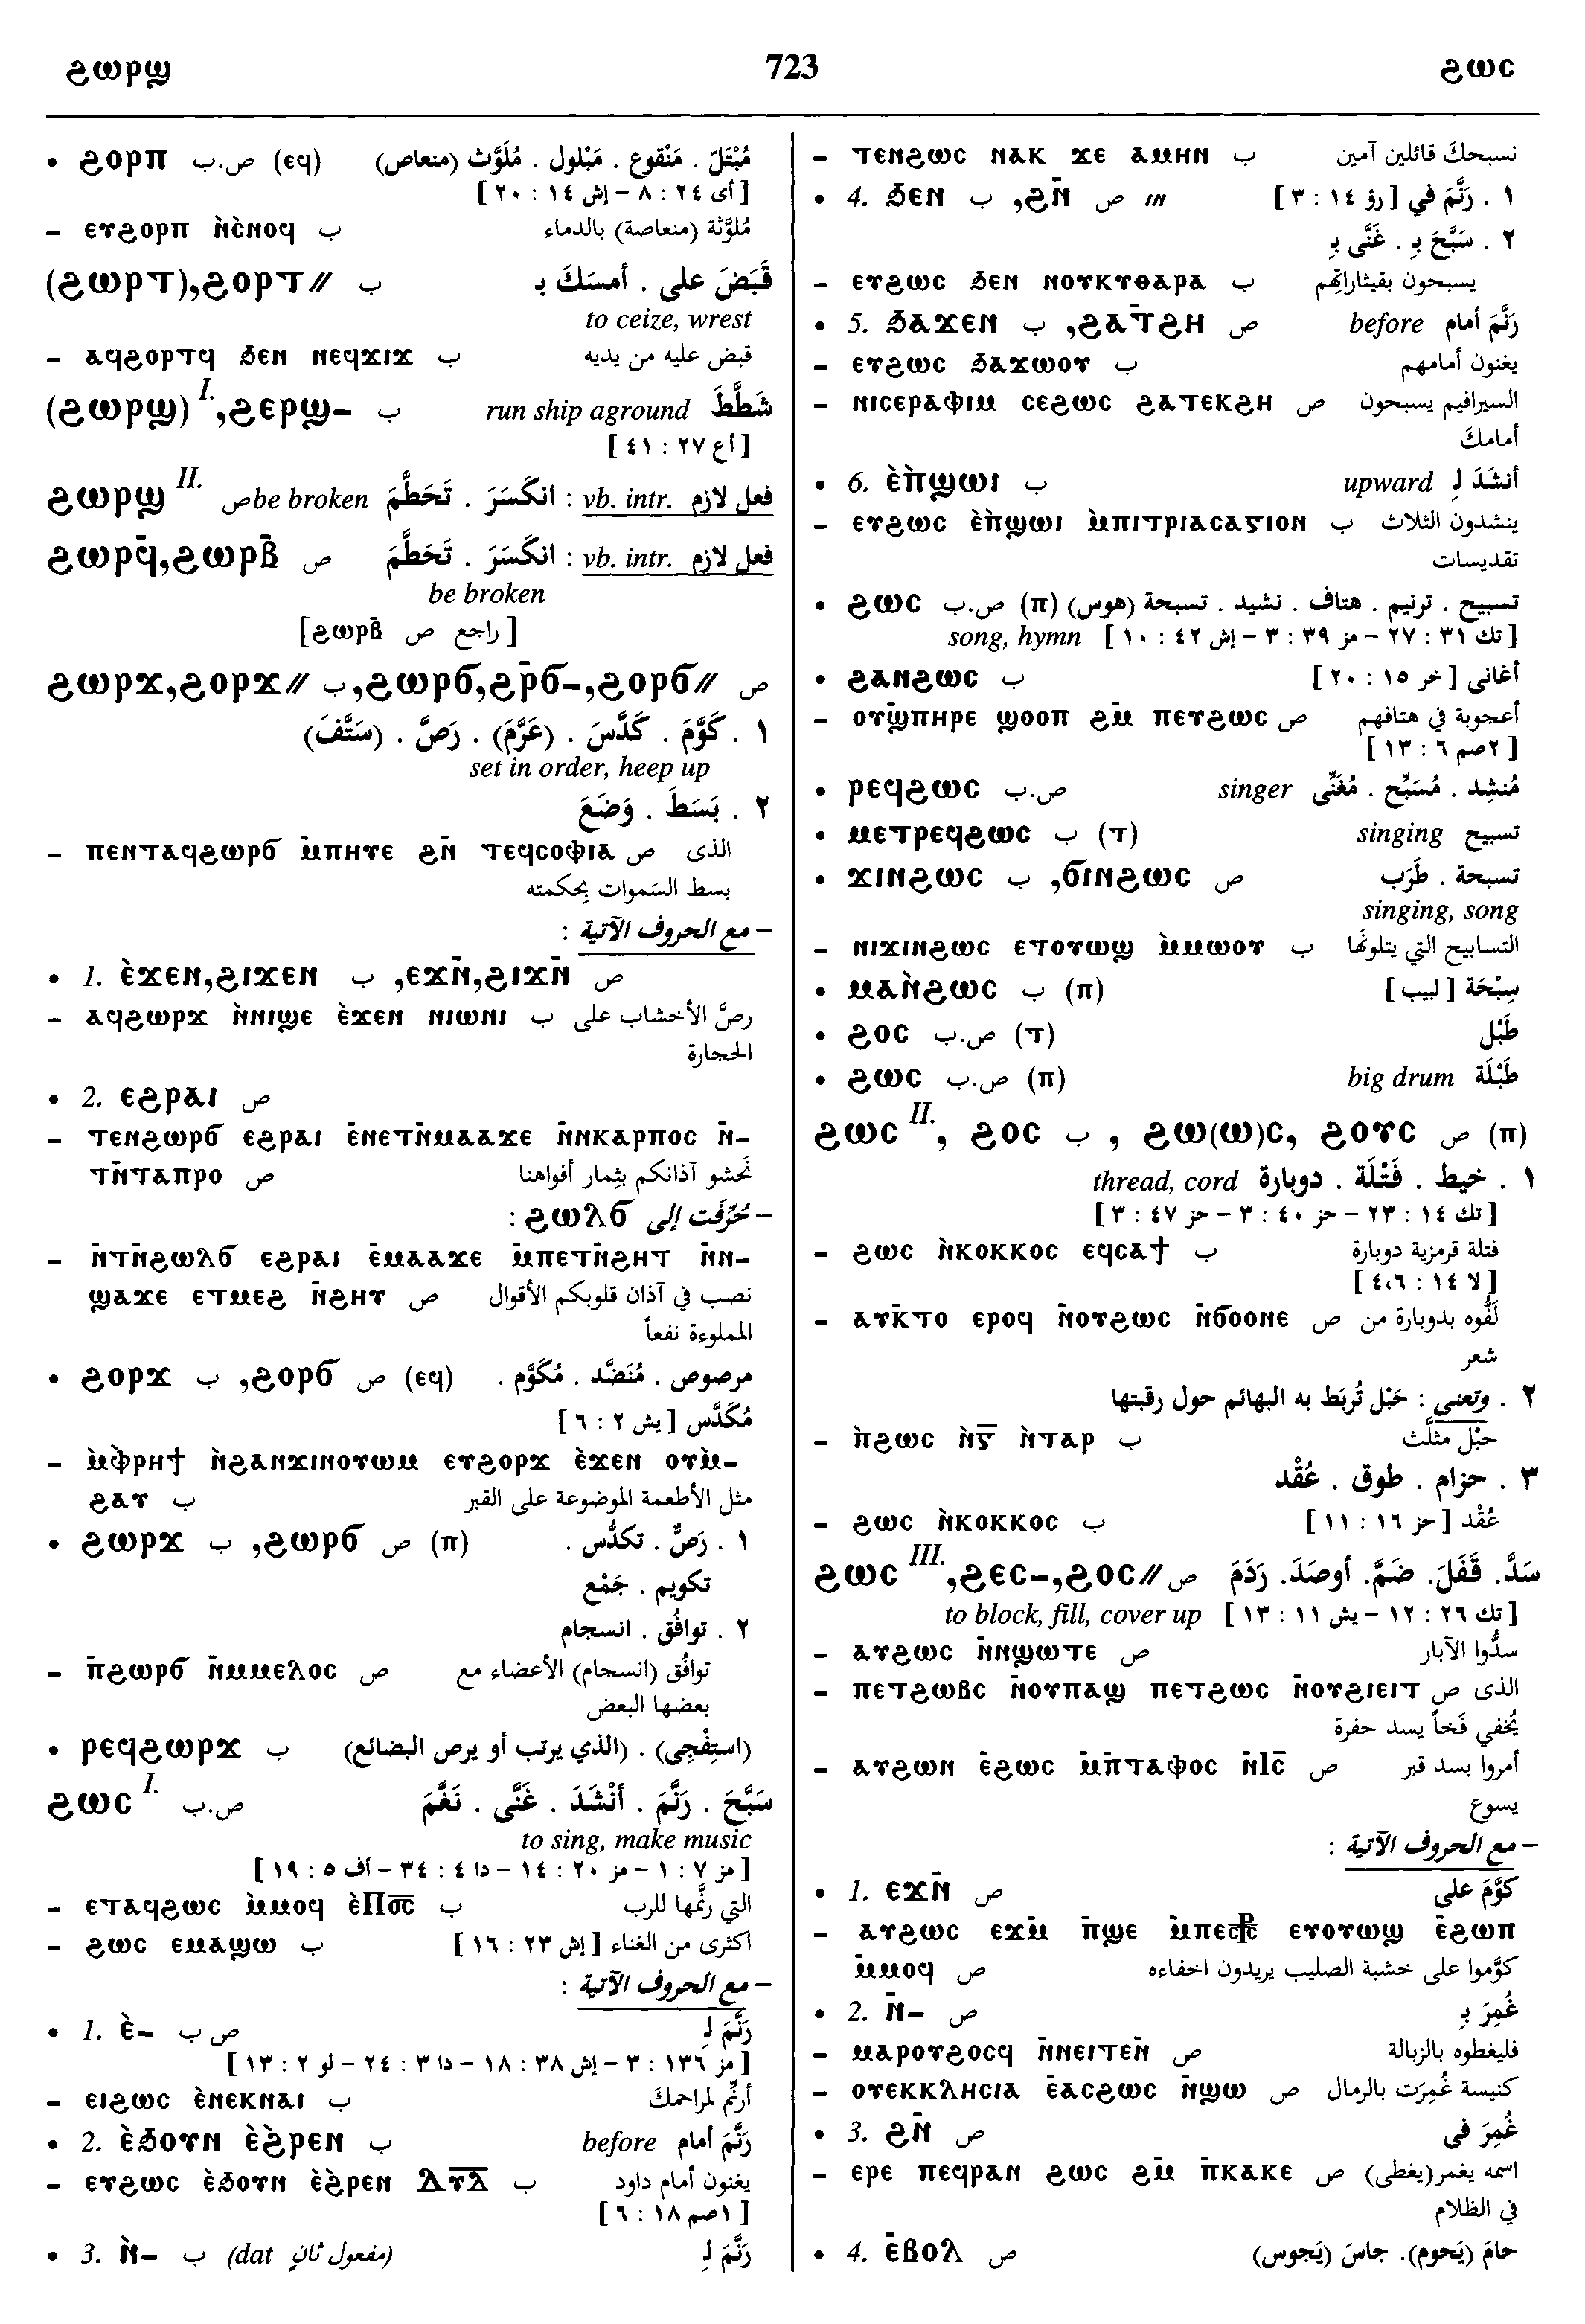 ϩⲱⲣϣ 723 ϩⲱⲥ
• ϩⲟⲣⲡ ص.ب (ⲉϥ) مُبْتَلّ . مَنْقوع . مَبْلول . مُلَوَّث (منعاص)
[أى ٢٤ : ٨ – إش ١٤ : ٢٠]
– ⲉⲩϩⲟⲣⲡ ⲛ̀ⲥ̀ⲛⲟϥ ب مُلوَّثة (منعاصة) بالدماء
(ϩⲱⲣⲧ),ϩⲟⲣⲧ// ب قَبَضَ على . أمسَكَ بـِ
to ceize, wrest
– ⲁϥϩⲟⲣⲧϥ ϧⲉⲛ ⲛⲉϥϫⲓϫ ب قبض عليه من يديه
(ϩⲱⲣϣ) I. ,ϩⲉⲣϣ– ب run ship aground شَطَّطَ
[أع ٢٧ : ٤١]
ϩⲱⲣϣ II. ص be broken فعل لازم .vb. intr : انكَسَرَ . تَحَطَّمَ
ϩⲱⲣϥ̄,ϩⲱⲣⲃ̄ ص فعل لازم .vb. intr : انكَسَرَ . تَحَطَّمَ
be broken
[راجع ص ϩⲱⲣⲃ̄]
ϩⲱⲣϫ,ϩⲟⲣϫ// ب ,ϩⲱⲣϭ,ϩⲣ̄ϭ–,ϩⲟⲣϭ// ص
١ . كَوَّمَ . كَدَّسَ . (عَرَّمَ) . رَصَّ . (سَتَّفَ)
set in order, heep up
٢ . بَسَطَ . وَضَعَ
– ⲡⲉⲛⲧⲁϥϩⲱⲣϭ ⲙ̄ⲡⲏⲩⲉ ϩⲛ̄ ⲧⲉϥⲥⲟⲫⲓⲁ ص الذى
بسط السَموات بِحكمته
– مع الحروف الآتية :
• 1. ⲉ̀ϫⲉⲛ,ϩⲓϫⲉⲛ ب ,ⲉϫⲛ̄,ϩⲓϫⲛ̄ ص
– ⲁϥϩⲱⲣϫ ⲛ̀ⲛⲓϣⲉ ⲉ̀ϫⲉⲛ ⲛⲓⲱⲛⲓ ب رصَّ الأخشاب على
الحجارة
• 2. ⲉϩⲣⲁⲓ ص
– ⲧⲉⲛϩⲱⲣϭ ⲉϩⲣⲁⲓ ⲉ̄ⲛⲉⲧⲛ̄ⲙⲁⲁϫⲉ ⲛ̄ⲛⲕⲁⲣⲡⲟⲥ ⲛ̄–
ⲧⲛ̄ⲧⲁⲡⲣⲟ ص نَحشو آذانكم بثِمار أفواهنا
– حُرِّفَت إلى ϩⲱⲗϭ :
– ⲛ̄ⲧⲛ̄ϩⲱⲗϭ ⲉϩⲣⲁⲓ ⲉ̄ⲙⲁⲁϫⲉ ⲙ̄ⲡⲉⲧⲛ̄ϩⲏⲧ ⲛ̄ⲛ–
ϣⲁϫⲉ ⲉⲧⲙⲉϩ ⲛ̄ϩⲏⲩ ص نصب في آذان قلوبكم الأقوال
المملوءة نفعاً
• ϩⲟⲣϫ ب ,ϩⲟⲣϭ ص (ⲉϥ) مرصوص . مُنَضَّد . مُكَوَّم .
مُكَدَّس [يش ٢ : ٦]
– ⲙ̀ⲫⲣⲏϯ ⲛ̀ϩⲁⲛϫⲓⲛⲟⲩⲱⲙ ⲉⲩϩⲟⲣϫ ⲉ̀ϫⲉⲛ ⲟⲩⲙ̀–
ϩⲁⲩ ب مثل الأطعمة الموضوعة على القبر
• ϩⲱⲣϫ ب ,ϩⲱⲣϭ ص (ⲡ) ١ . رَصٌّ . تكدُّس .
تكويم . جَمْع
٢ . توافُق . انسجام
– ⲡ̄ϩⲱⲣϭ ⲛ̄ⲙⲙⲉⲗⲟⲥ ص توافُق (انسجام) الأعضاء مع
بعضها البعض
• ⲣⲉϥϩⲱⲣϫ ب (استِفْجِى) . (الذي يرتب أو يرص البضائع)
ϩⲱⲥ I. ص.ب سَبَّحَ . رَنَّمَ . أنْشَدَ . غَنَّى . نَغَّمَ
to sing, make music
[مز ٧ : ١ – مز ٢٠ : ١٤ – دا ٤ : ٣٤ – أف ٥ : ١٩]
– ⲉⲧⲁϥϩⲱⲥ ⲙ̀ⲙⲟϥ ⲉ̀Ⲡⲟ̅ⲥ̅ ب التي رنَّمها للرب
– ϩⲱⲥ ⲉⲙⲁϣⲱ ب اكثرى من الغناء [إش ٢٣ : ١٦]
– مع الحروف الآتية :
• 1. ⲉ̀– ص ب رَنَّمَ لـِ
[مز ١٣٦ : ٣ – إش ٣٨ : ١٨ – دا ٣ : ٢٤ – لو ٢ : ١٣]
– ⲉⲓϩⲱⲥ ⲉ̀ⲛⲉⲕⲛⲁⲓ ب أرنِّم لمراحمكَ
• 2. ⲉ̀ϧⲟⲩⲛ ⲉ̀ϩ̀ⲣⲉⲛ ب before رَنَّمَ أمام
– ⲉⲩϩⲱⲥ ⲉ̀ϧⲟⲩⲛ ⲉ̀ϩ̀ⲣⲉⲛ Ⲇ̅ⲩ̅ⲇ̅ ب يغنون أمام داود
[١صم ١٨ : ٦]
• 3. ⲛ̀– ب (dat مفعول ثانٍ) رَنَّمَ لـِ
– ⲧⲉⲛϩⲱⲥ ⲛⲁⲕ ϫⲉ ⲁⲙⲏⲛ ب نسبحكَ قائلين آمين
• 4. ϧⲉⲛ ب ,ϩⲛ̄ ص in ١ . رَنَّمَ في [رؤ ١٤ : ٣]
٢ . سَبَّحَ بِـ . غَنَّى بِـ
– ⲉⲩϩⲱⲥ ϧⲉⲛ ⲛⲟⲩⲕⲩⲑⲁⲣⲁ ب يسبحون بقيثاراتِهم
• 5. ϧⲁϫⲉⲛ ب ,ϩⲁⲧ̄ϩⲏ ص before رَنَّمَ أمام
– ⲉⲩϩⲱⲥ ϧⲁϫⲱⲟⲩ ب يغنون أمامهم
– ⲛⲓⲥⲉⲣⲁⲫⲓⲙ ⲥⲉϩⲱⲥ ϩⲁⲧⲉⲕϩⲏ ص السيرافيم يسبحون
أمامكَ
• 6. ⲉ̀ⲡ̀ϣⲱⲓ ب upward أنشَدَ لـِ
– ⲉⲩϩⲱⲥ ⲉ̀ⲡ̀ϣⲱⲓ ⲙ̀ⲡⲓⲧⲣⲓⲁⲥⲁⲅⲓⲟⲛ ب ينشدون الثلاث
تقديسات
• ϩⲱⲥ ص.ب (ⲡ) تسبيح . ترنيم . هتاف . نشيد . تسبحة (هوس)
song, hymn [تك ٣١ : ٢٧ – مز ٣٩ : ٣ – إش ٤٢ : ١٠]
• ϩⲁⲛϩⲱⲥ ب أغانى [خر ١٥ : ٢٠]
– ⲟⲩϣ̄ⲡⲏⲣⲉ ϣⲟⲟⲡ ϩⲙ̄ ⲡⲉⲩϩⲱⲥ ص أعجوبة في هتافهم
[٢صم ٦ : ١٣]
• ⲣⲉϥϩⲱⲥ ص.ب singer مُنشِد . مُسَبِّح . مُغَنِّى
• ⲙⲉⲧⲣⲉϥϩⲱⲥ ب (ⲧ) singing تسبيح
• ϫⲓⲛϩⲱⲥ ب ,ϭⲓⲛϩⲱⲥ ص تسبحة . طَرَب
singing, song
– ⲛⲓϫⲓⲛϩⲱⲥ ⲉⲧⲟⲩⲱϣ ⲙ̀ⲙⲱⲟⲩ ب التسابيح التي يتلونَها
• ⲙⲁⲛ̀ϩⲱⲥ ب (ⲡ) سِبْحَة [لبيب]
• ϩⲟⲥ ص.ب (ⲧ) طَبْل
• ϩⲱⲥ ص.ب (ⲡ) big drum طَبْلَة
ϩⲱⲥ II. , ϩⲟⲥ ب , ϩⲱ(ⲱ)ⲥ, ϩⲟⲩⲥ ص (ⲡ)
١ . خيط . فَتْلَة . دوبارة thread, cord
[تك ١٤ : ٢٣ – حز ٤٠ : ٣ – حز ٤٧ : ٣]
– ϩⲱⲥ ⲛ̀ⲕⲟⲕⲕⲟⲥ ⲉϥⲥⲁϯ ب فتلة قرمزية دوبارة
[لا ١٤ : ٤،٦]
– ⲁⲩⲕ̄ⲧⲟ ⲉⲣⲟϥ ⲛ̄ⲟⲩϩⲱⲥ ⲛ̄ϭⲟⲟⲛⲉ ص لَفُّوه بدوبارة من
شعر
٢ . وتعنى : حَبْل تُربَط به البهائم حول رقبتها
– ⲡ̀ϩⲱⲥ ⲛ̀ⲅ̅ ⲛ̀ⲧⲁⲣ ب حبْل مثلَّث
٣ . حزام . طوق . عُقْد
– ϩⲱⲥ ⲛ̀ⲕⲟⲕⲕⲟⲥ ب عُقْد [حز ١٦ : ١١]
ϩⲱⲥ III. ,ϩⲉⲥ–,ϩⲟⲥ// ص سَدَّ. قَفَلَ. ضَمَّ. أوصَدَ. رَدَمَ
to block, fill, cover up [تك ٢٦ : ١٢ – يش ١١ : ١٣]
– ⲁⲩϩⲱⲥ ⲛ̄ⲛϣⲱⲧⲉ ص سدُّوا الآبار
– ⲡⲉⲧϩⲱⲃⲥ ⲛ̄ⲟⲩⲡⲁϣ ⲡⲉⲧϩⲱⲥ ⲛ̄ⲟⲩϩⲓⲉⲓⲧ ص الذى
يُخفي فَخاً يسد حفرة
– ⲁⲩϩⲱⲛ ⲉ̄ϩⲱⲥ ⲙ̄ⲡ̄ⲧⲁⲫⲟⲥ ⲛ̄ⲓ̅ⲥ̅ ص أمروا بسد قبر
يسوع
– مع الحروف الآتية :
• 1. ⲉϫⲛ̄ ص كوَّمَ على
– ⲁⲩϩⲱⲥ ⲉϫⲙ̄ ⲡ̄ϣⲉ ⲙ̄ⲡⲉⲥ⳨ⲥ ⲉⲩⲟⲩⲱϣ ⲉ̄ϩⲱⲡ
ⲙ̄ⲙⲟϥ ص كوَّموا على خشبة الصليب يريدون اخفاءه
• 2. ⲛ̄– ص غُمِرَ بِـ
– ⲙⲁⲣⲟⲩϩⲟⲥϥ ⲛ̄ⲛⲉⲓⲧⲉⲛ̄ ص فليغطوه بالزبالة
– ⲟⲩⲉⲕⲕⲗⲏⲥⲓⲁ ⲉ̄ⲁⲥϩⲱⲥ ⲛ̄ϣⲱ ص كنيسة غُمِرَت بالرمال
• 3. ϩⲛ̄ ص غُمِرَ فى
– ⲉⲣⲉ ⲡⲉϥⲣⲁⲛ ϩⲱⲥ ϩⲙ̄ ⲡ̄ⲕⲁⲕⲉ ص اسمه يغمر(يغطى)
في الظلام
• 4. ⲉ̄ⲃⲟⲗ ص حامَ (يَحوم). جاسَ (يَجوس)